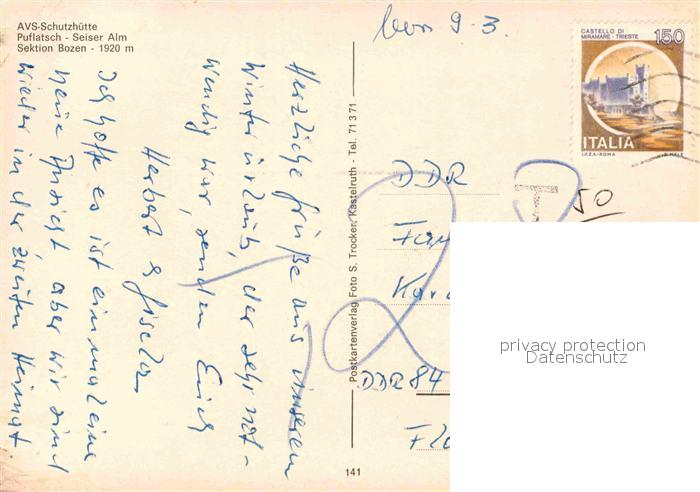 AVS-Schutzhütte
Puflatsch - Seiser Alm
Sektion Bozen - 1920 m
9. 3.
Herzliche Grüße aus unserem
Winterurlaub, der sehr not-
wendig war, senden Euch
Herbert & Gisela
Ich hoffe es ist ein mal eine
neue Ansicht aber wir sind
wieder in der zweiten Heimat.
Postkartenverlag Foto S. Trocker, Kastelruth - Tel. 71371
141
CASTELLO DI
MIRAMARE - TRIESTE
150
ITALIA
I.P.Z.S.-ROMA
T
50
DDR
Fam
DDR 84
privacy protection
Datenschutz